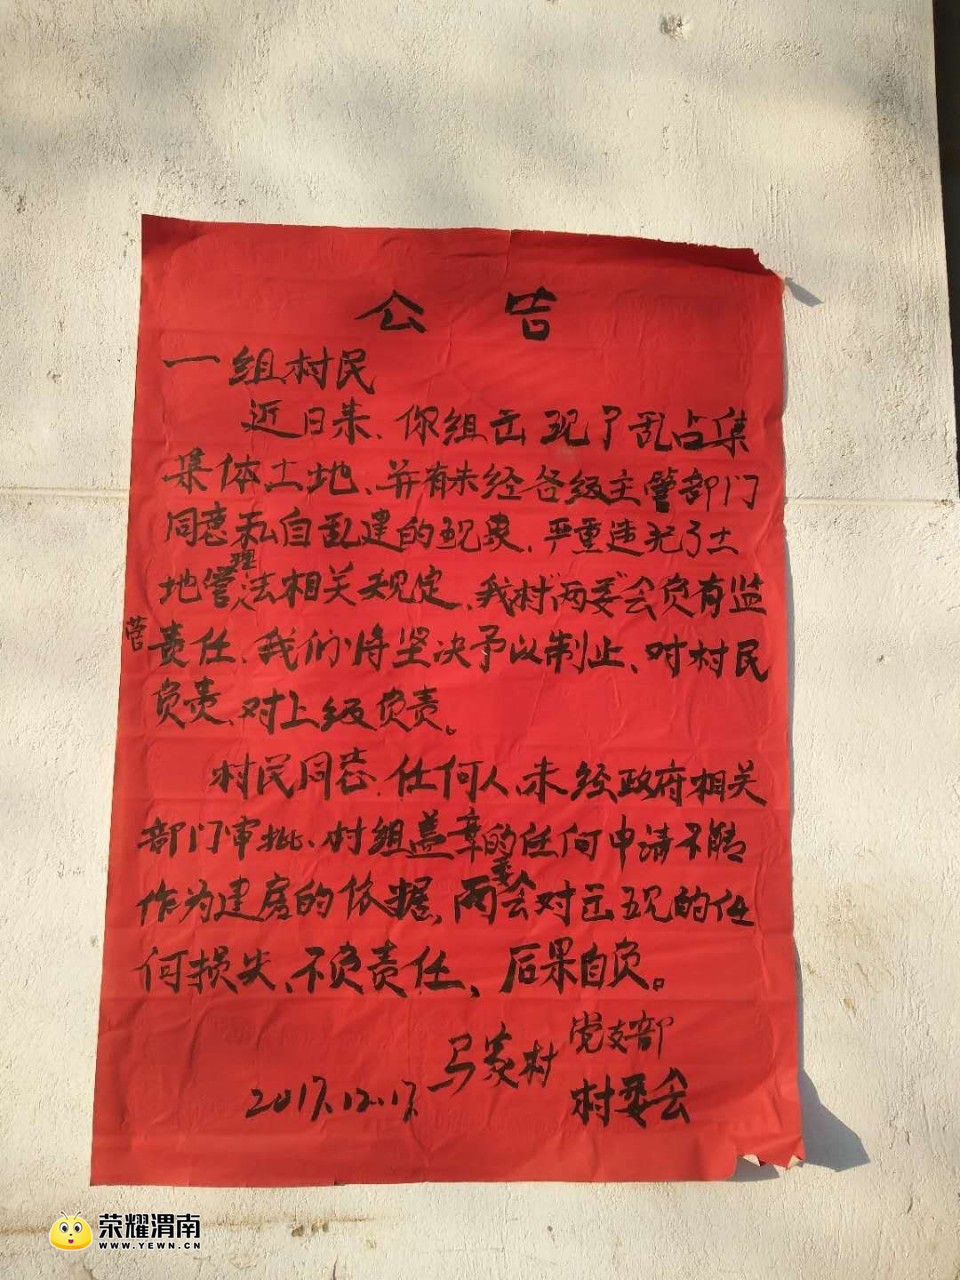 公告
一组村民
近日来、你组出现了乱占集
集体土地、并有未经各级主管部门
同意私自乱建的现象、严重违犯了土
地管理法相关规定、我村"两委"会负有监
管责任、我们将坚决予以制止、对村民
负责、对上级负责。
村民同志、任何人、未经政府相关
部门审批、村组盖章的任何申请不能
作为建房的依据、两委会对出现的任
何损失、不负责任、后果自负。
马家村 党支部
村委会
2017.12.17.
荣耀渭南
WWW.YEWN.CN